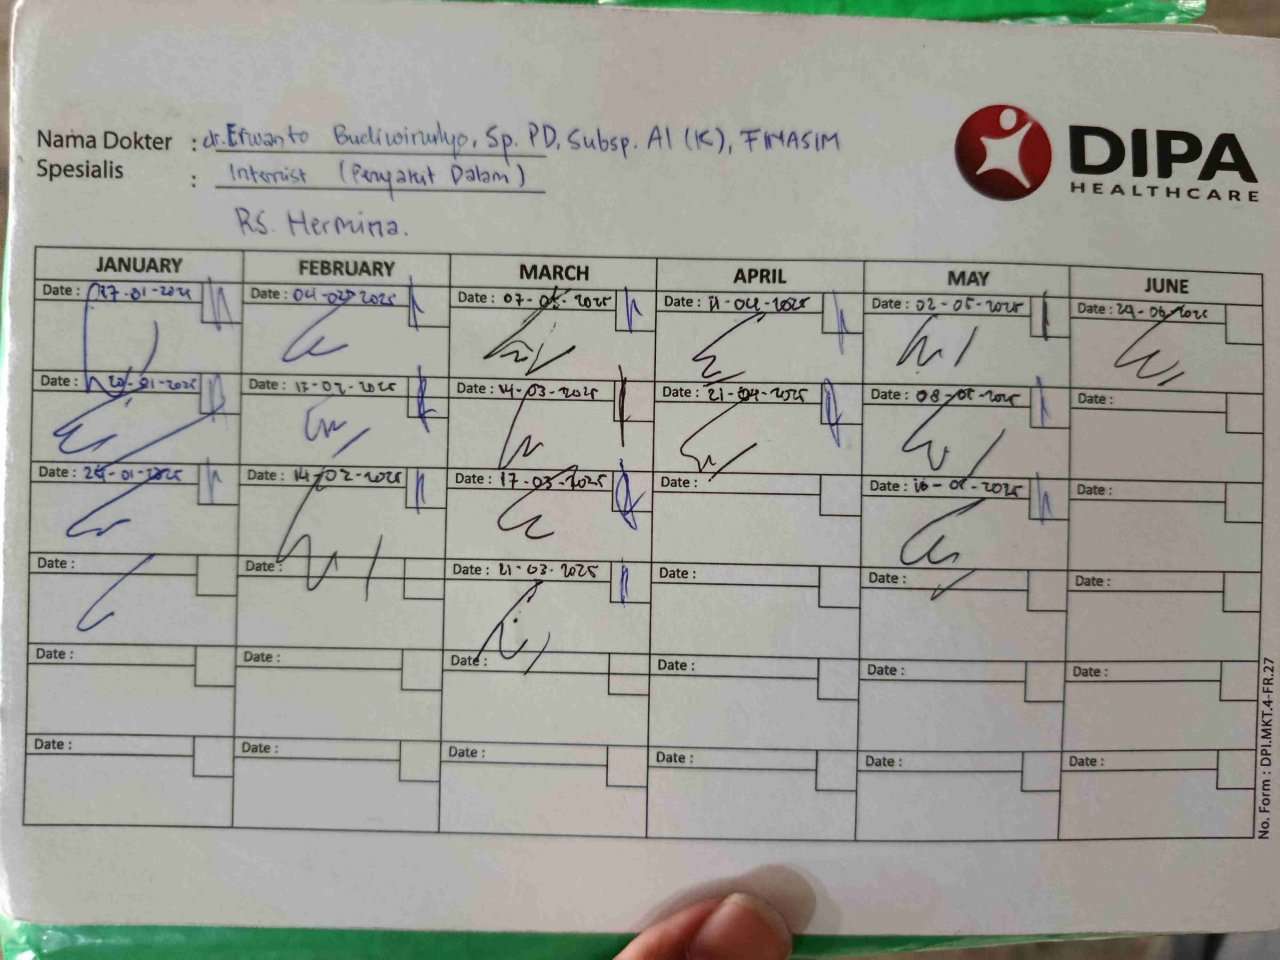 Nama Dokter : dr. Erwanto Budiwirulyo, Sp. PD, Subsp. AI (K), FINASIM
Spesialis : Internist (Penyakit Dalam)
RS. Hermina.
DIPA
HEALTHCARE
JANUARY FEBRUARY MARCH APRIL MAY JUNE
Date : Date : 04-02-2025 Date : 07-03-2025 Date : 11-04-2025 Date : 02-05-2025 Date :
Date : 20-01-2025 Date : Date : 14-03-2025 Date : 21-04-2025 Date : 08-05-2025 Date :
Date : Date : 14-02-2025 Date : 17-03-2025 Date : Date : 16-05-2025 Date :
Date : Date : Date : 21-03-2025 Date : Date : Date :
Date : Date : Date : Date : Date : Date :
Date : Date : Date : Date : Date : Date :
No. Form : DPI.MKT.4-FR.27